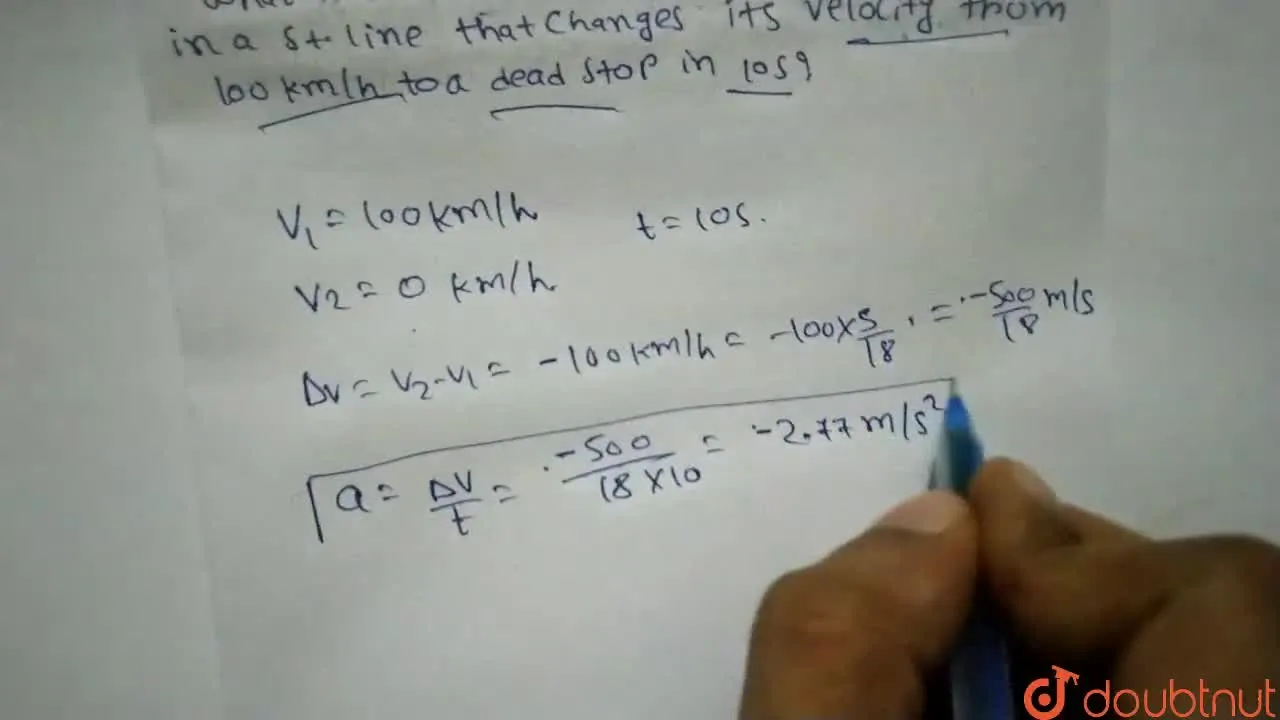 What
in a st. line that changes its velocity from
100 km/h to a dead stop in 10s?
V₁ = 100 km/h t = 10s.
V2 = 0 km/h
Δv = V₂-V₁ = -100 km/h = -100×5/18 = -500/18 m/s
a = ΔV/t = -500/18×10 = -2.77 m/s²
doubtnut